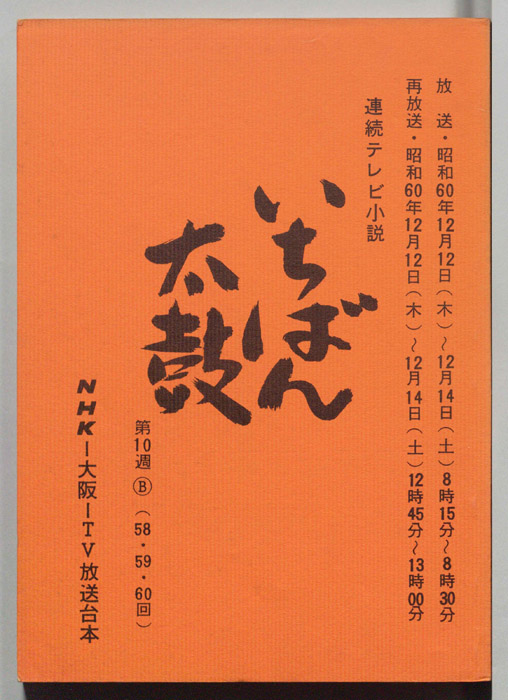 放送・昭和60年12月12日(木)~12月14日(土)8時15分~8時30分
再放送・昭和60年12月12日(木)~12月14日(土)12時45分~13時00分
連続テレビ小説
いちばん
太鼓
第10週Ⓑ(58・59・60回)
NHK-大阪-TV放送台本